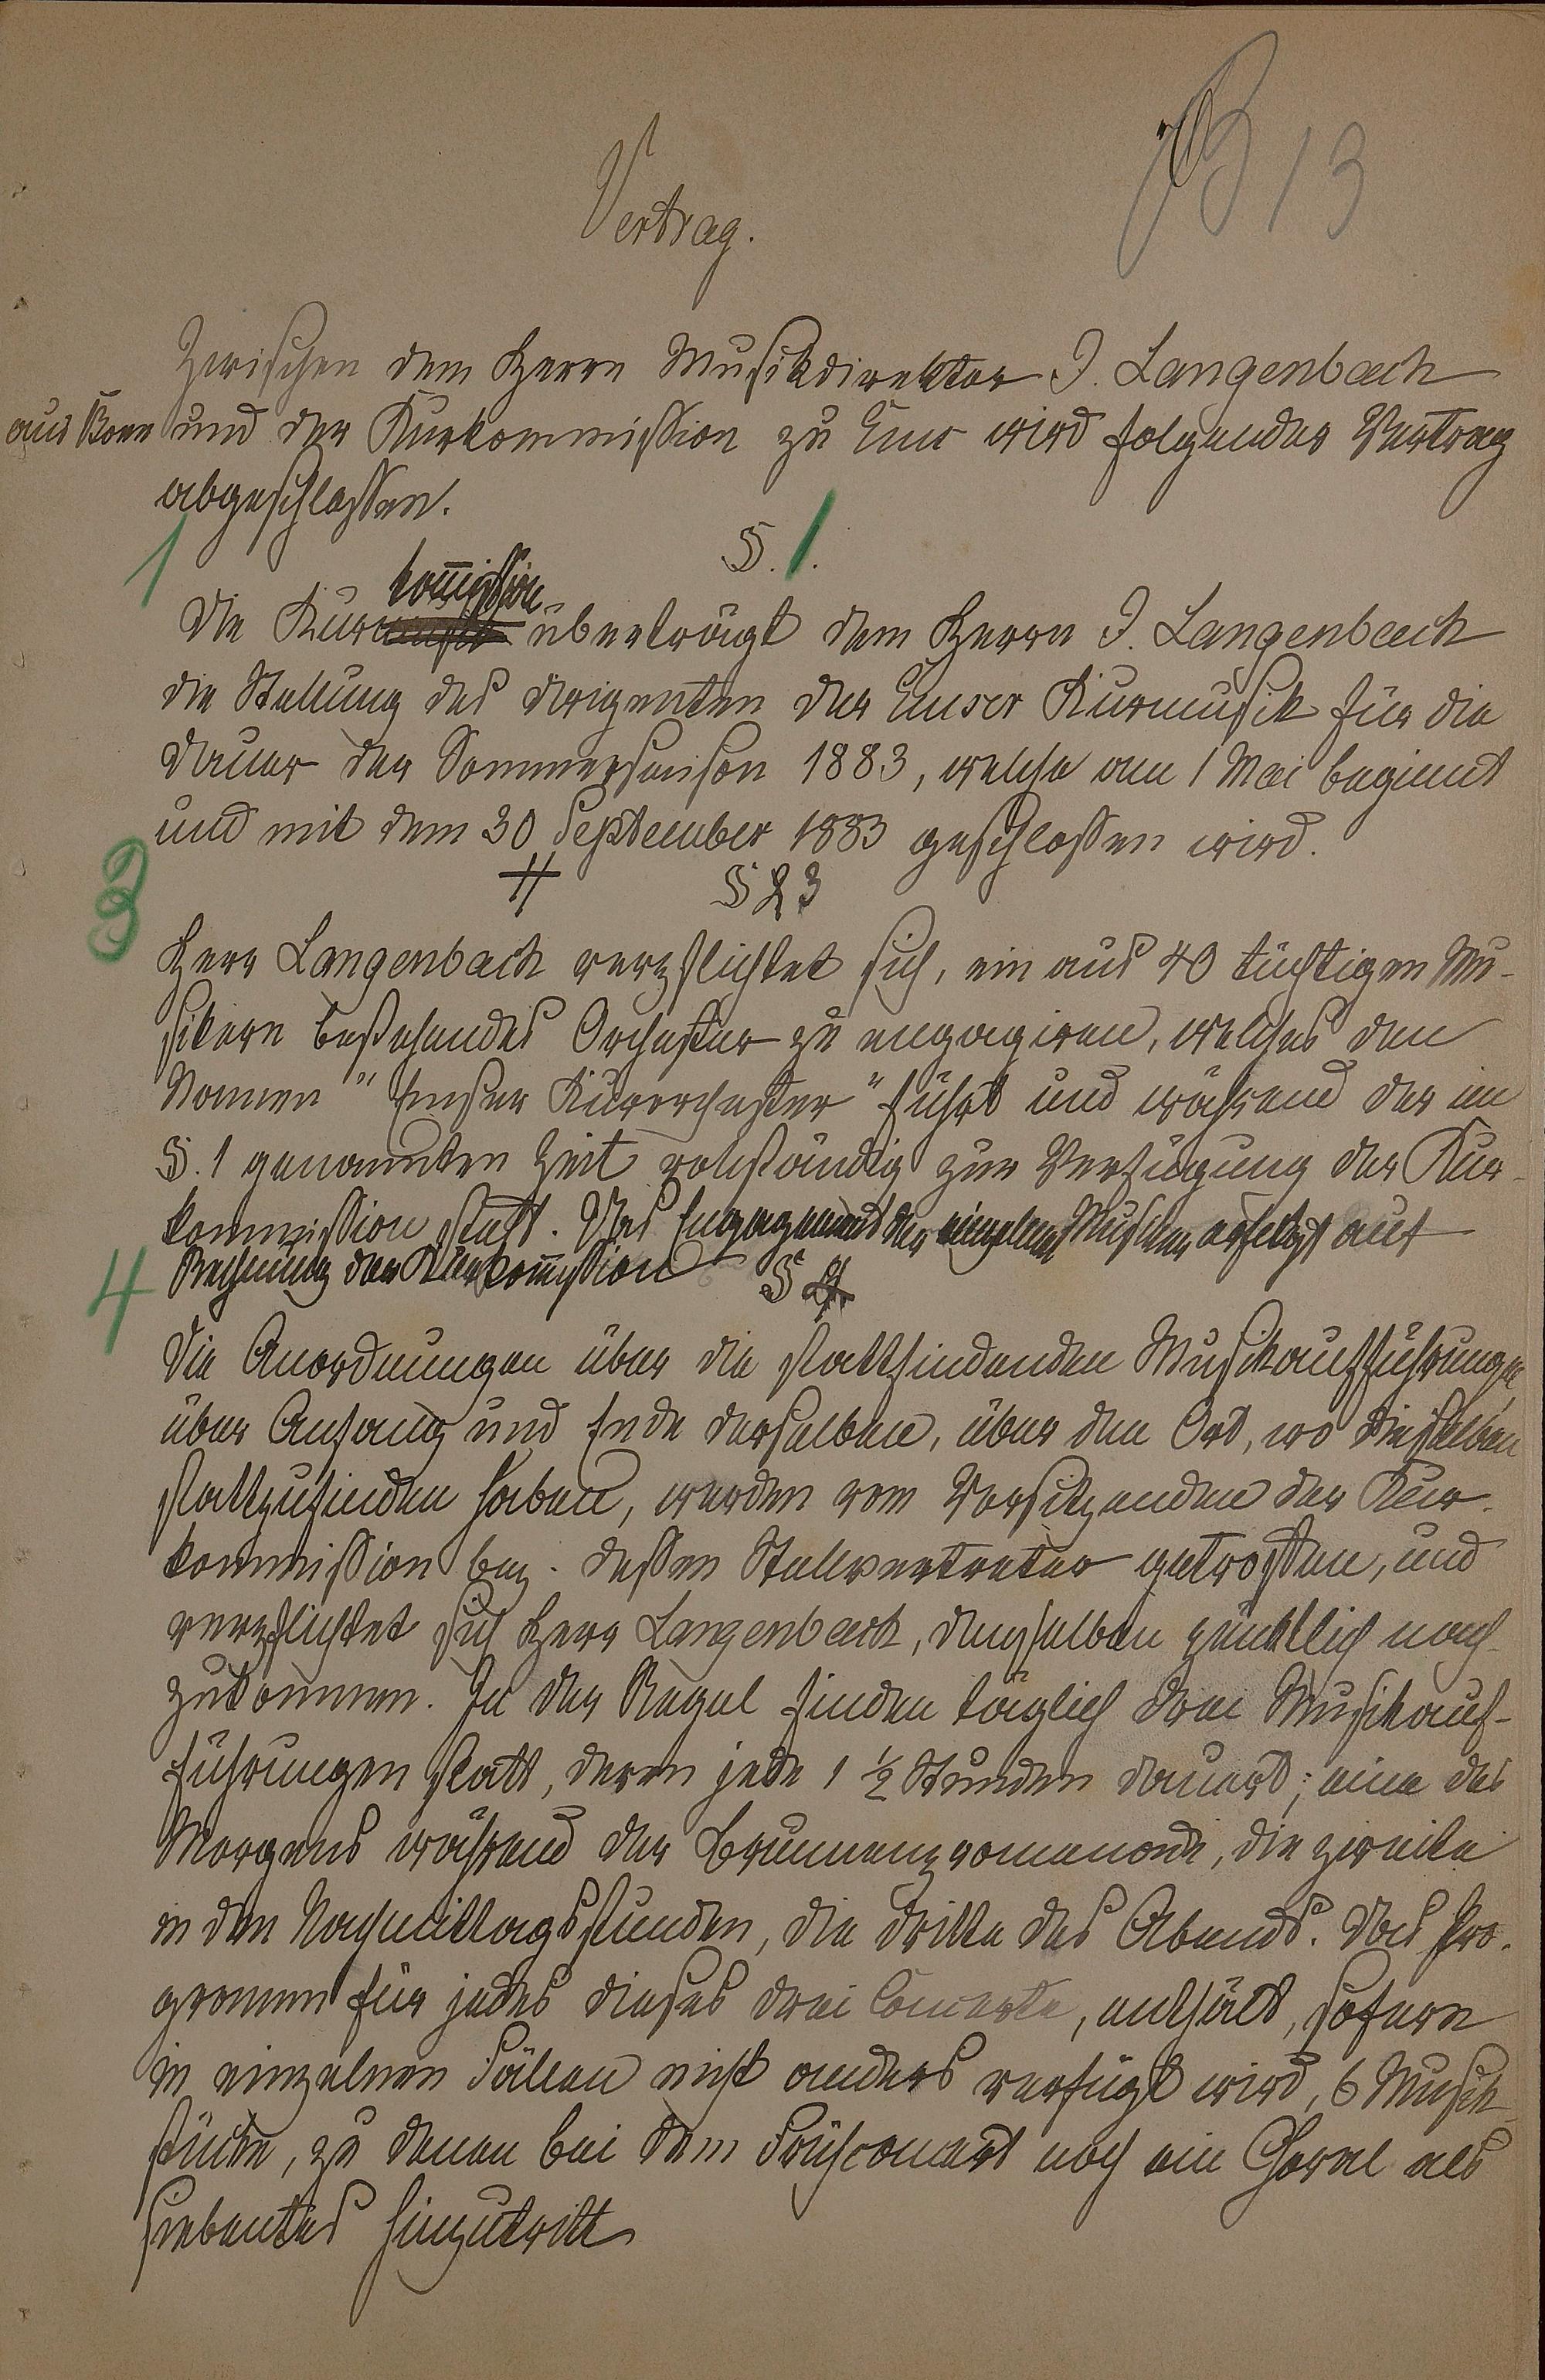 B 13
Vertrag.
Zwischen dem Herrn Musikdirektor J. Langenbach
aus Bonn und der Kurkommission zu Ems wird folgender Vertrag
abgeschlossen.
§. 1.
1
kom̅ission
Die Kur überträgt dem Herrn J. Langenbach
die Stellung des Dirigenten der Emser Kurmusik für die
Dauer der Sommersaison 1883, welche am 1 Mai beginnt
und mit dem 30 September 1883 geschlossen wird.
3 # § 2 3
Herr Langenbach verpflichtet sich, ein aus 40 tüchtigen Mu-
sikern bestehendes Orchester zu engagiren, welches den
Namen "Emser Kurorchester" führt und während der im
§. 1 genannten Zeit vollständig zur Verfügung der Kur-
kommission steht. Das Engagement der einzelnen Musiker erfolgt auf
Rechnung der Kurkom̅ission
4 § 4
Die Anordnungen über die stattfindenden Musikaufführungen
über Anfang und Ende derselben, über den Ort, wo dieselben
stattzufinden haben, werden vom Vorsitzenden der Kur-
kommission bez. dessen Stellvertreter getroffen, und
verpflichtet sich Herr Langenbach, denselben pünktlich nach-
zukommen. In der Regel finden täglich drei Musikauf-
führungen statt, deren jede 1 ½ Stunden dauert; eine des
Morgens während der Brunnenpromenade, die zweite
in den Nachmittagsstunden, die dritte des Abends. Das Pro-
gramm für jedes dieser drei Concerte, enthält, sofern
in einzelnen Fällen nicht anders verfügt wird, 6 Musik-
stücke, zu denen bei dem Frühconcert noch ein Choral als
siebentes hinzutritt